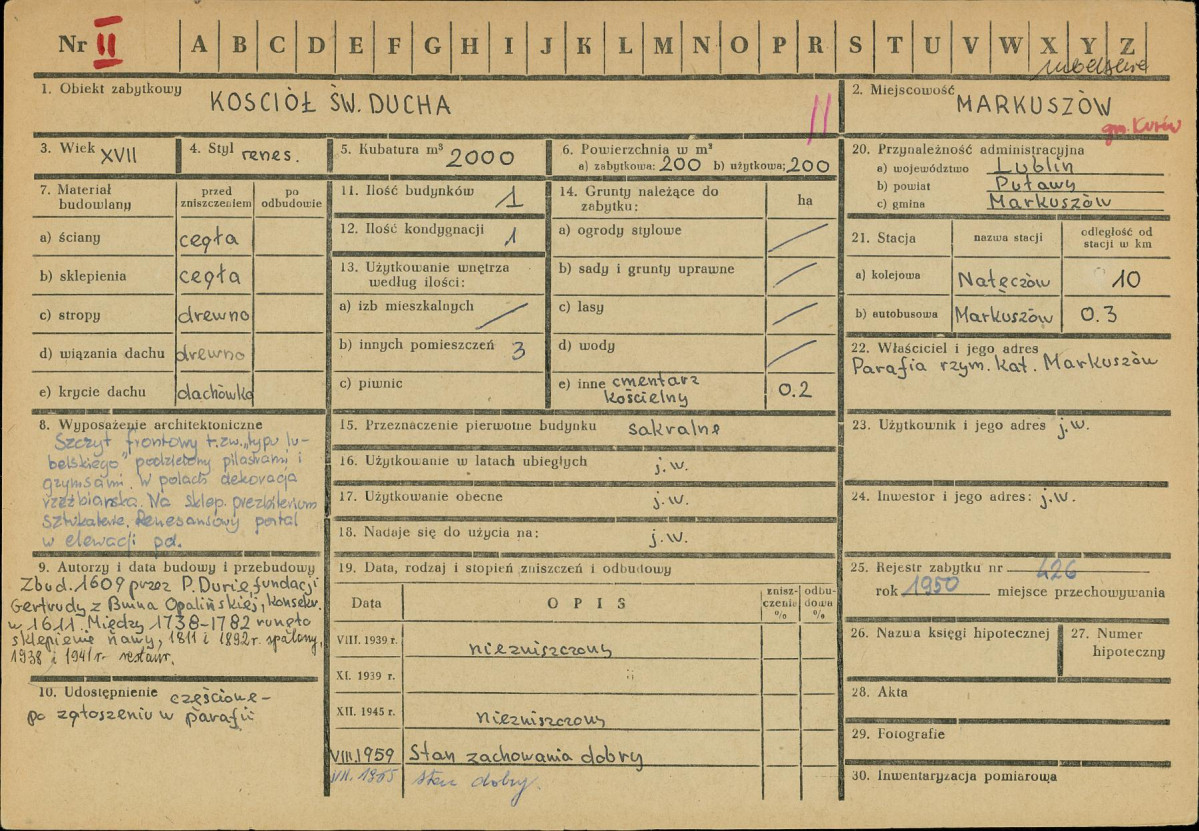 Nr II A B C D E F G H I J K L M N O P R S T U V W X Y Z
lubelskie
1. Obiekt zabytkowy KOSCIÓŁ ŚW. DUCHA
II
2. Miejscowość MARKUSZÓW
gm. Kurów
3. Wiek XVII
4. Styl renes.
5. Kubatura m³ 2000
6. Powierzchnia w m²
a) zabytkowa: 200 b) użytkowa: 200
7. Materiał budowlany
przed zniszczeniem
po odbudowie
a) ściany cegła
b) sklepienia cegła
c) stropy drewno
d) wiązania dachu drewno
e) krycie dachu dachówka
8. Wyposażenie architektoniczne
Szczyt frontowy t.zw. „typu lu-
belskiego" podzielony pilastrami i
gzymsami. W polach dekoracja
rzeźbiarska. Na sklep. prezbiterium
sztukaterie. Renesansowy portal
w elewacji pd.
9. Autorzy i data budowy i przebudowy
Zbud. 1609 przez P. Durie, fundacji
Gertrudy z Bnina Opalińskiej, konsekr.
w 1611. Między 1738-1782 runęło
sklepienie nawy, 1811 i 1892 r. spalony,
1938 i 1941 r. restaur.
10. Udostępnienie częścione -
po zgłoszeniu w parafii
11. Ilość budynków 1
12. Ilość kondygnacji 1
13. Użytkowanie wnętrza
według ilości:
a) izb mieszkalnych /
b) innych pomieszczeń 3
c) piwnic
14. Grunty należące do
zabytku: ha
a) ogrody stylowe /
b) sady i grunty uprawne /
c) lasy /
d) wody /
e) inne cmentarz
kościelny 0.2
15. Przeznaczenie pierwotne budynku sakralne
16. Użytkowanie w latach ubiegłych j.w.
17. Użytkowanie obecne j.w.
18. Nadaje się do użycia na: j.w.
19. Data, rodzaj i stopień zniszczeń i odbudowy
Data OPIS znisz-
czenie
%
odbu-
dowa
%
VIII. 1939 r. niezniszczony
XI. 1939 r. "
XII. 1945 r. niezniszczony
VIII.1959 Stan zachowania dobry
stan dobry.
20. Przynależność administracyjna
a) województwo Lublin
b) powiat Puławy
c) gmina Markuszów
21. Stacja nazwa stacji odległość od
stacji w km
a) kolejowa Nałęczów 10
b) autobusowa Markuszów 0.3
22. Właściciel i jego adres
Parafia rzym. kat. Markuszów
23. Użytkownik i jego adres j.w.
24. Inwestor i jego adres: j.w.
25. Rejestr zabytku nr 426
rok 1950 miejsce przechowywania
26. Nazwa księgi hipotecznej
27. Numer
hipoteczny
28. Akta
29. Fotografie
30. Inwentaryzacja pomiarowa